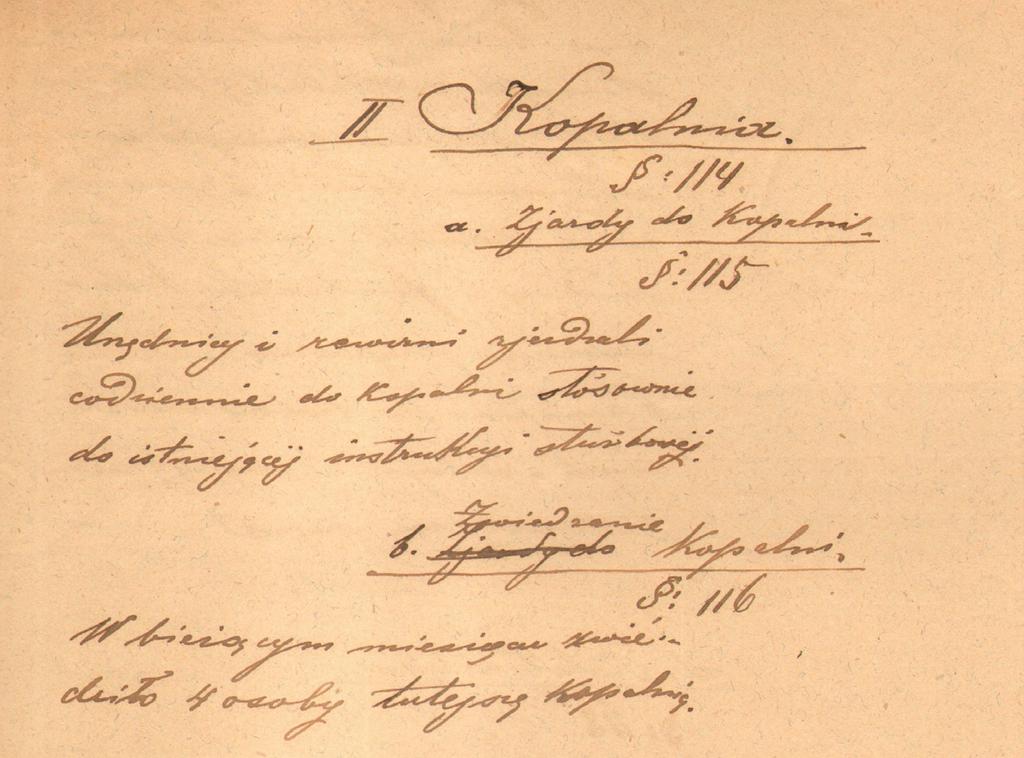 II Kopalnia.
§: 114
a. Zjazdy do Kopalni.
§: 115
Urzędnicy i rewirni zjeżdżali
codziennie do Kopalni stósownie
do istniejącéj instrukcyi służbowéj.
Zwiedzanie
b. Zjazdy do Kopalni.
§: 116
W bieżącym miesiącu zwié-
dziło 4 osoby tutejszą Kopalnię.